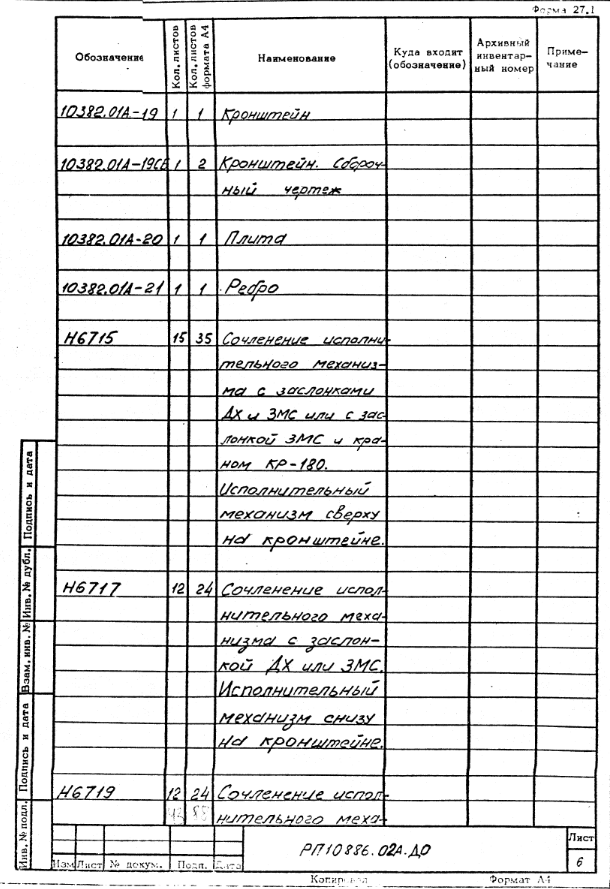 Форма 27.1
Обозначение Кол. листов Кол. листов формата А4 Наименование Куда входит (обозначение) Архивный инвентарный номер Примечание
10382.01А-19 1 1 Кронштейн
10382.01А-19СБ 1 2 Кронштейн. Сбороч-
ный чертеж
10382.01А-20 1 1 Плита
10382.01А-21 1 1 Ребро
Н6715 15 35 Сочленение исполни-
тельного механиз-
ма с заслонками
ДХ и ЗМС или с зас-
лонкой ЗМС и кра-
ном КР-180.
Исполнительный
механизм сверху
на кронштейне.
Н6717 12 24 Сочленение испол-
нительного меха-
низма с заслон-
кой ДХ или ЗМС.
Исполнительный
механизм снизу
на кронштейне.
Н6719 12 24 Сочленение испол-
нительного меха-
Инв. № подл. Подпись и дата Взам. инв. № Инв. № дубл. Подпись и дата
РП10886.02А.ДО
Лист
6
Изм Лист № докум. Подп. Дата
Копировал Формат А4